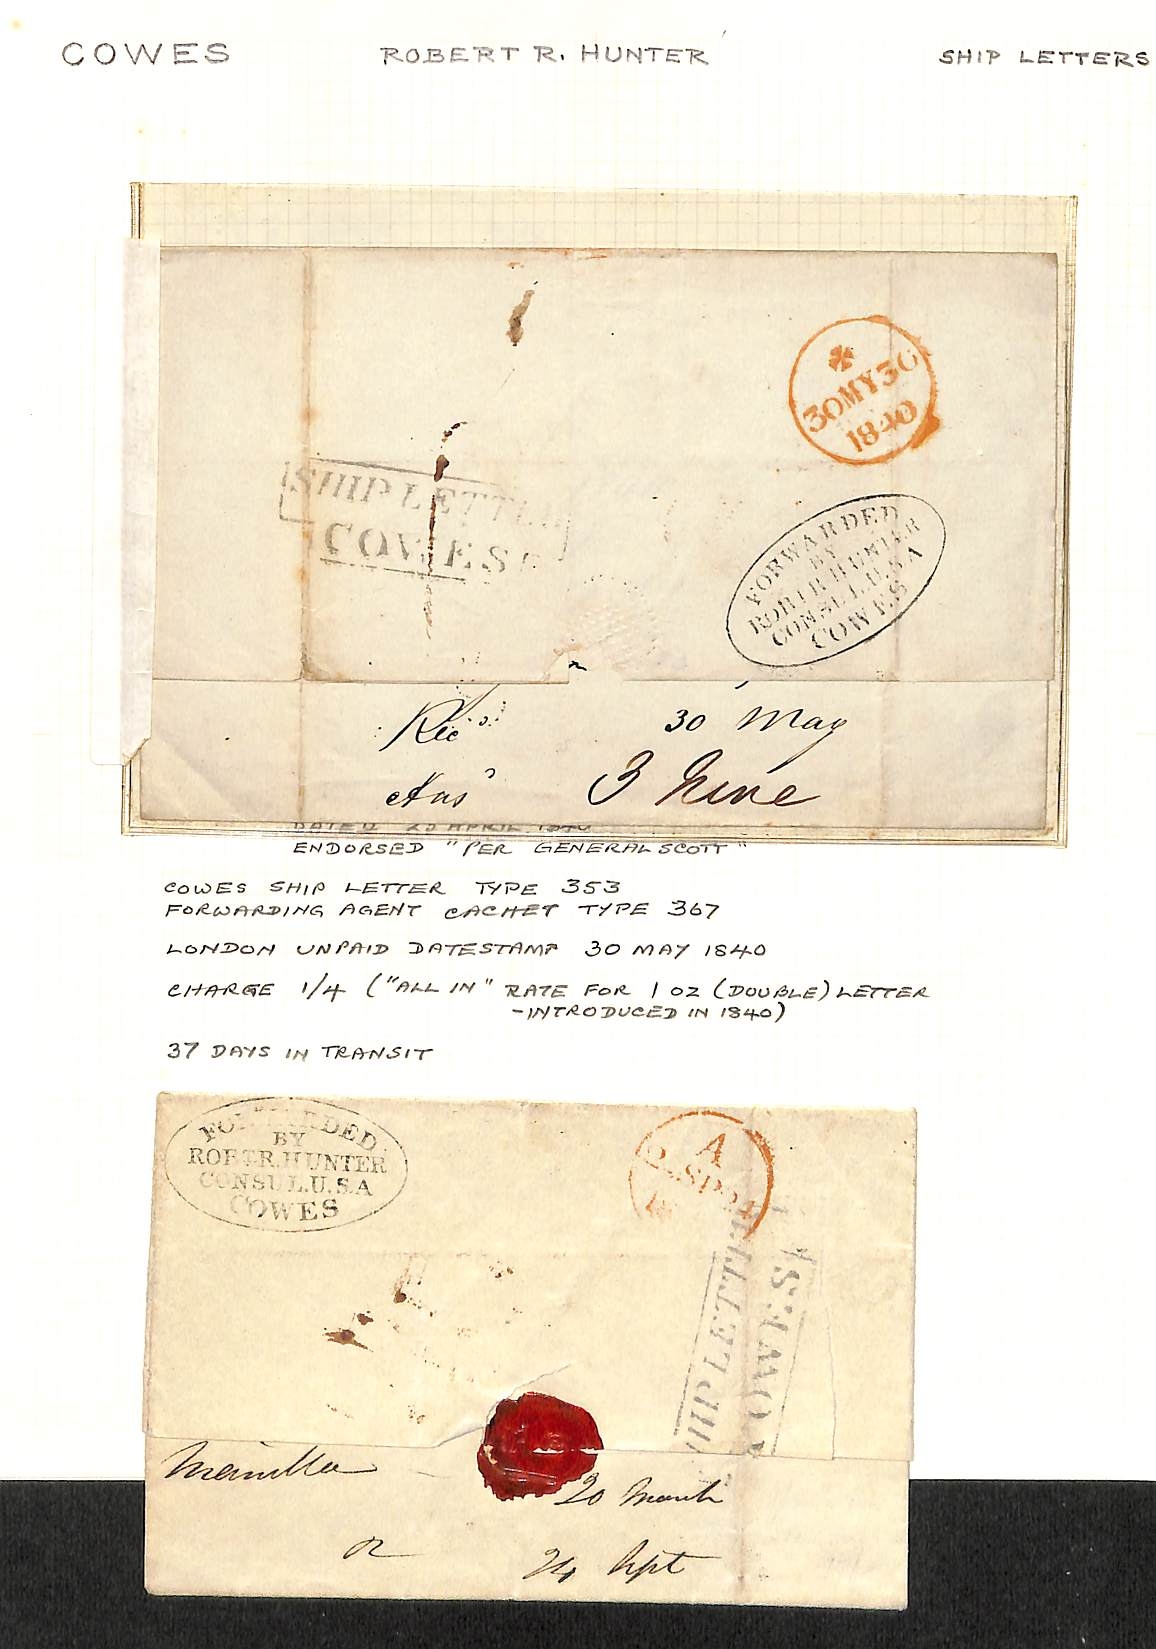 COWES ROBERT R. HUNTER SHIP LETTERS
30MY30
1840
SHIP LETTER
COWES
FORWARDED
BY
ROBT.R.HUNTER
CONSUL.U.S.A
COWES
Rec^d 30 May
Ans^d 3 June
DATED 23 APRIL 1840
ENDORSED "PER GENERAL SCOTT"
COWES SHIP LETTER TYPE 353
FORWARDING AGENT CACHET TYPE 367
LONDON UNPAID DATESTAMP 30 MAY 1840
CHARGE 1/4 ("ALL IN" RATE FOR 1 OZ (DOUBLE) LETTER
-INTRODUCED IN 1840)
37 DAYS IN TRANSIT
FORWARDED
BY
ROBT.R.HUNTER
CONSUL.U.S.A
COWES
A
SP
SHIP LETTER
COWES
Manilla 20 March
R 24 Sept